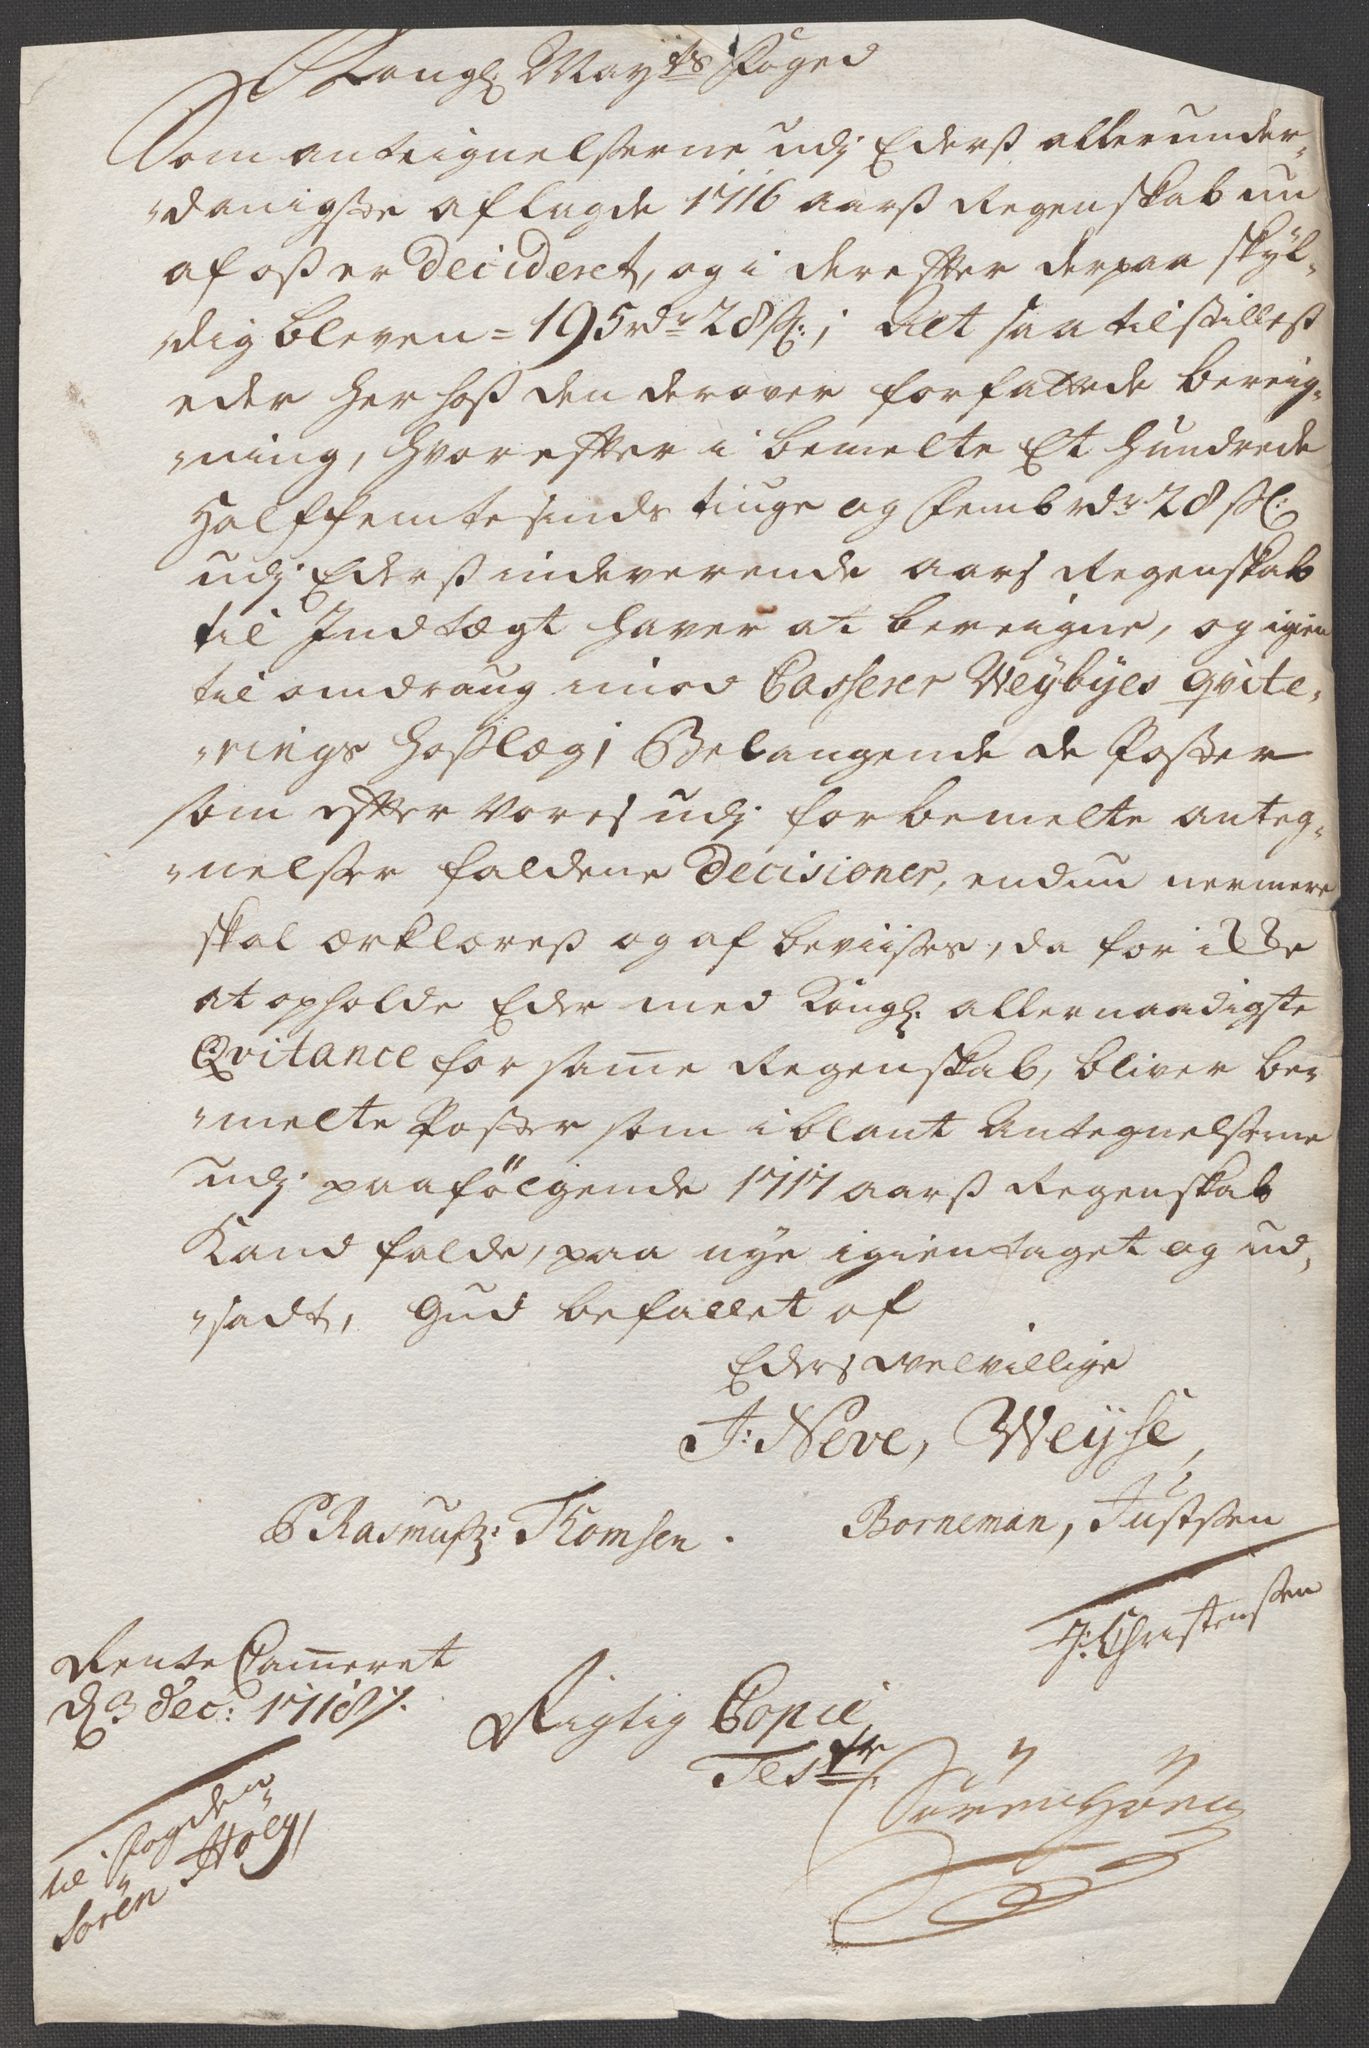 Kongl: Mayts Foged
Som anteignelserne udj Ederß allerunder-
danigste aflagde 1716 aarß Regenskab nu
af oß er Decideret, og i derefter derpaa skyl-
dig bleven = 195 rdr 28 ß:; Alt saa tilstilleß
eder her hoß den derover forfattede bereig-
ning, hvorefter i bemelte Et hundrede
Halffemtesinds tiuge og femb rdr 28 ßl:
udj Ederß indeverende aars Regenskab
til Indtægt haver at bereigne, og igien
til omdraug imod Casserer Weybyes qvite-
rings hoßlæg; Belangende de Poster
som efter Vores udj forbemelte anteg-
nelser faldene Decisioner, endnu nermere
skal ærklæreß og af beviises, da for icke
at opholde Eder med Kongl: allernaadigste
Qvitance for same Regenskab, bliver be-
melte Poster som iblant Antegnelserne
udj paafölgende 1717 aarß Regenskab
Kand falde, paa nye igientaget og ud-
sadt, Gud befallet af
Eders velvillige
J: Neve, Weyse,
P Rasmußz: Thomsen. Borneman, Justsen
J: Christensen
Rente Cameret
d 3 dec: 1718
Rigtig Copie,
Test
Sören Höeg
til fogden
Sören Höeg